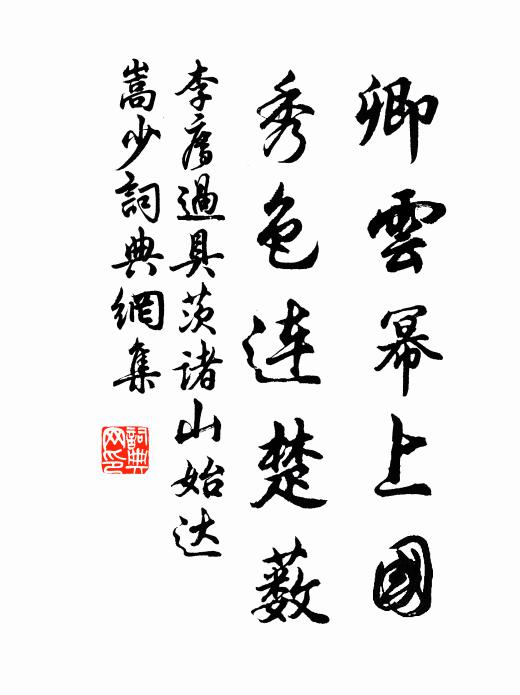 卿雲冪上國
秀色連楚薮
李廌過具茨諸山始达
嵩少詞典網集
詞典
网印